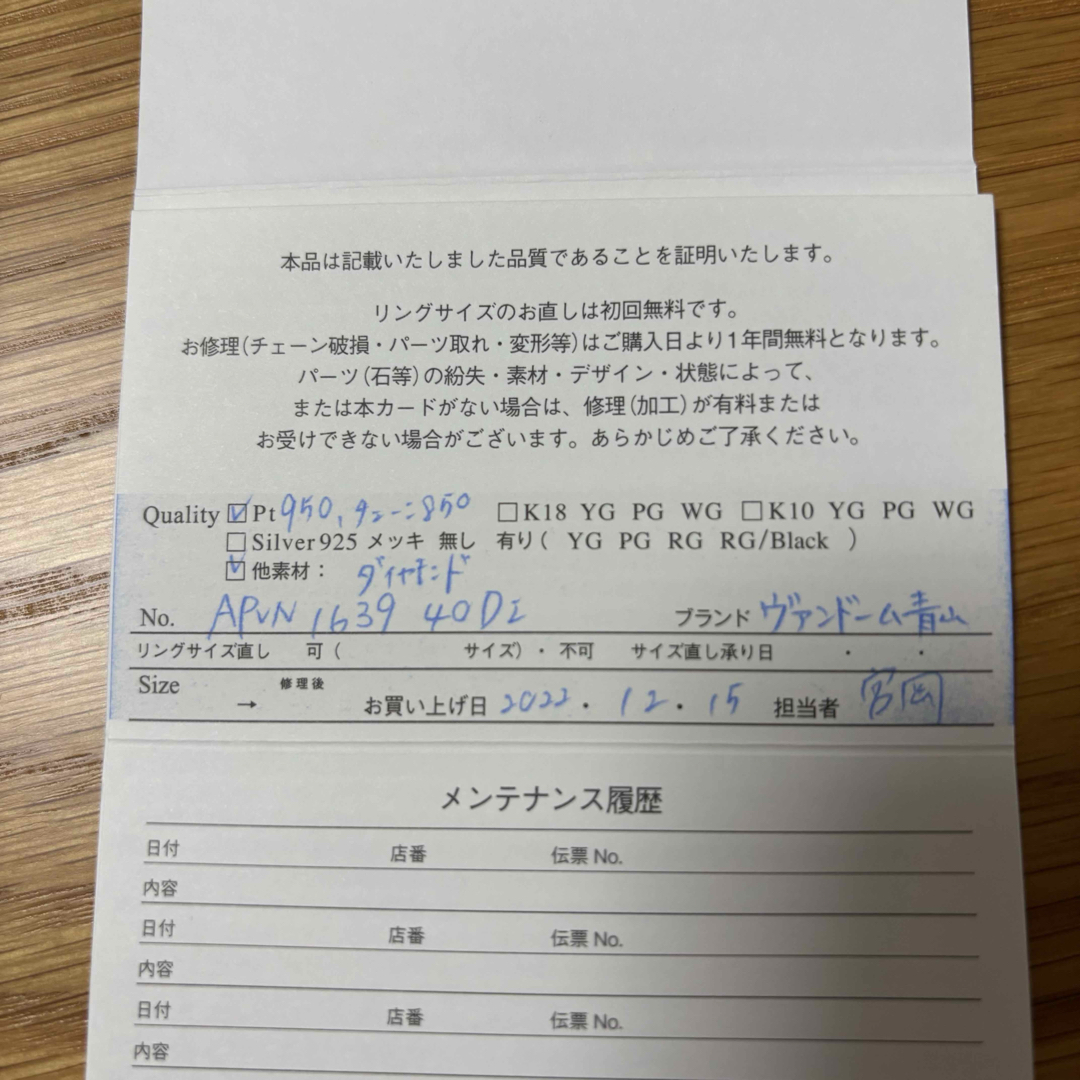 本品は記載いたしました品質であることを証明いたします。
リングサイズのお直しは初回無料です。
お修理(チェーン破損・パーツ取れ・変形等)はご購入日より1年間無料となります。
パーツ(石等)の紛失・素材・デザイン・状態によって、
または本カードがない場合は、修理(加工)が有料または
お受けできない場合がございます。あらかじめご了承ください。
Quality ☑Pt 950, チェーン850 □K18 YG PG WG □K10 YG PG WG
□Silver925 メッキ 無し 有り( YG PG RG RG/Black )
☑他素材: ダイヤモンド
No. APVN 1639 40DI ブランド ヴァンドーム青山
リングサイズ直し 可( サイズ)・不可 サイズ直し承り日 ・ ・
Size → 修理後 お買い上げ日 2022・12・15 担当者 宮岡
メンテナンス履歴
日付 店番 伝票No.
内容
日付 店番 伝票No.
内容
日付 店番 伝票No.
内容